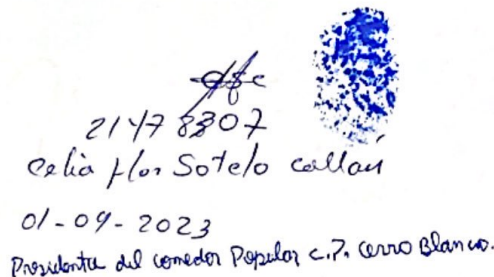 21478307
Celia flor Sotelo Collari
01-09-2023
Presidenta del comedor Popular C.P. Cerro Blanco.